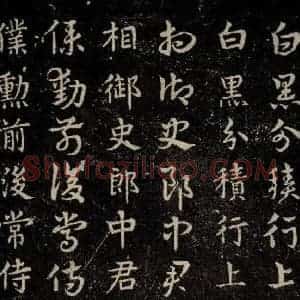 白黑分積行上
白黑分積行上
相御史郎中君
相御史郎中君
僕勳前後常侍
僕勳前後常侍
Shufaziliao.com